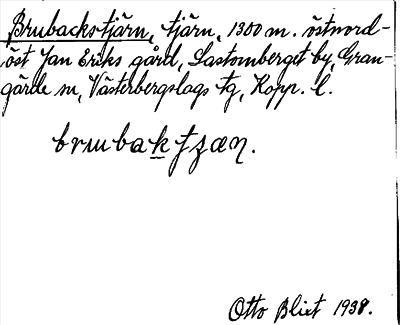 Brubackstjärn, tjärn, 1300 m. östnord-
öst Jan Eriks gård, Sastomberget by, Gran-
gärde sn, Västerbergslags tg, Kopp. l.
brubaktjæn.
Otto Blixt 1938.